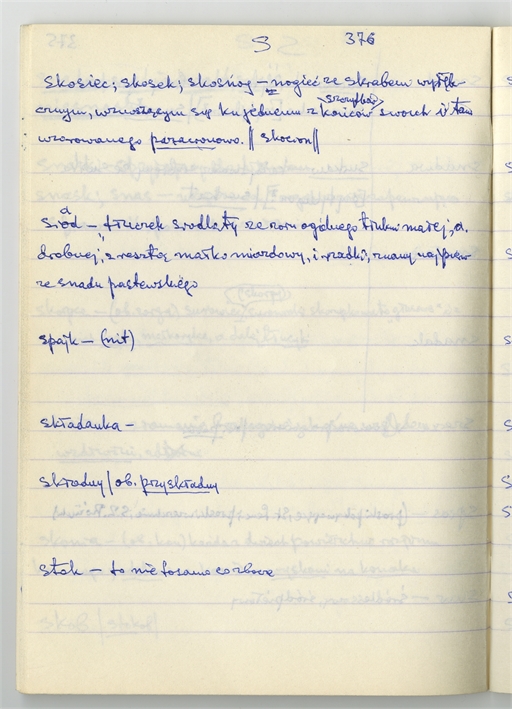 S 376
skosiec; skosek; skosnog – nogieć ze skrabem wyłęb-
cznym, wznoszącym się ku jednemu z końców swoich i
wzorowanego paracionowo. || skocron ||
siod – tłuczek siodłaty ze zoru ogólnego małej, a.
drobnej, z resztą mało miazdowy, i rzadki, znany najpierw
ze snadu pastewskiego
spajk – (nit)
składanka –
składny / ob. przyskładny
stok – to nie to samo co zbocze